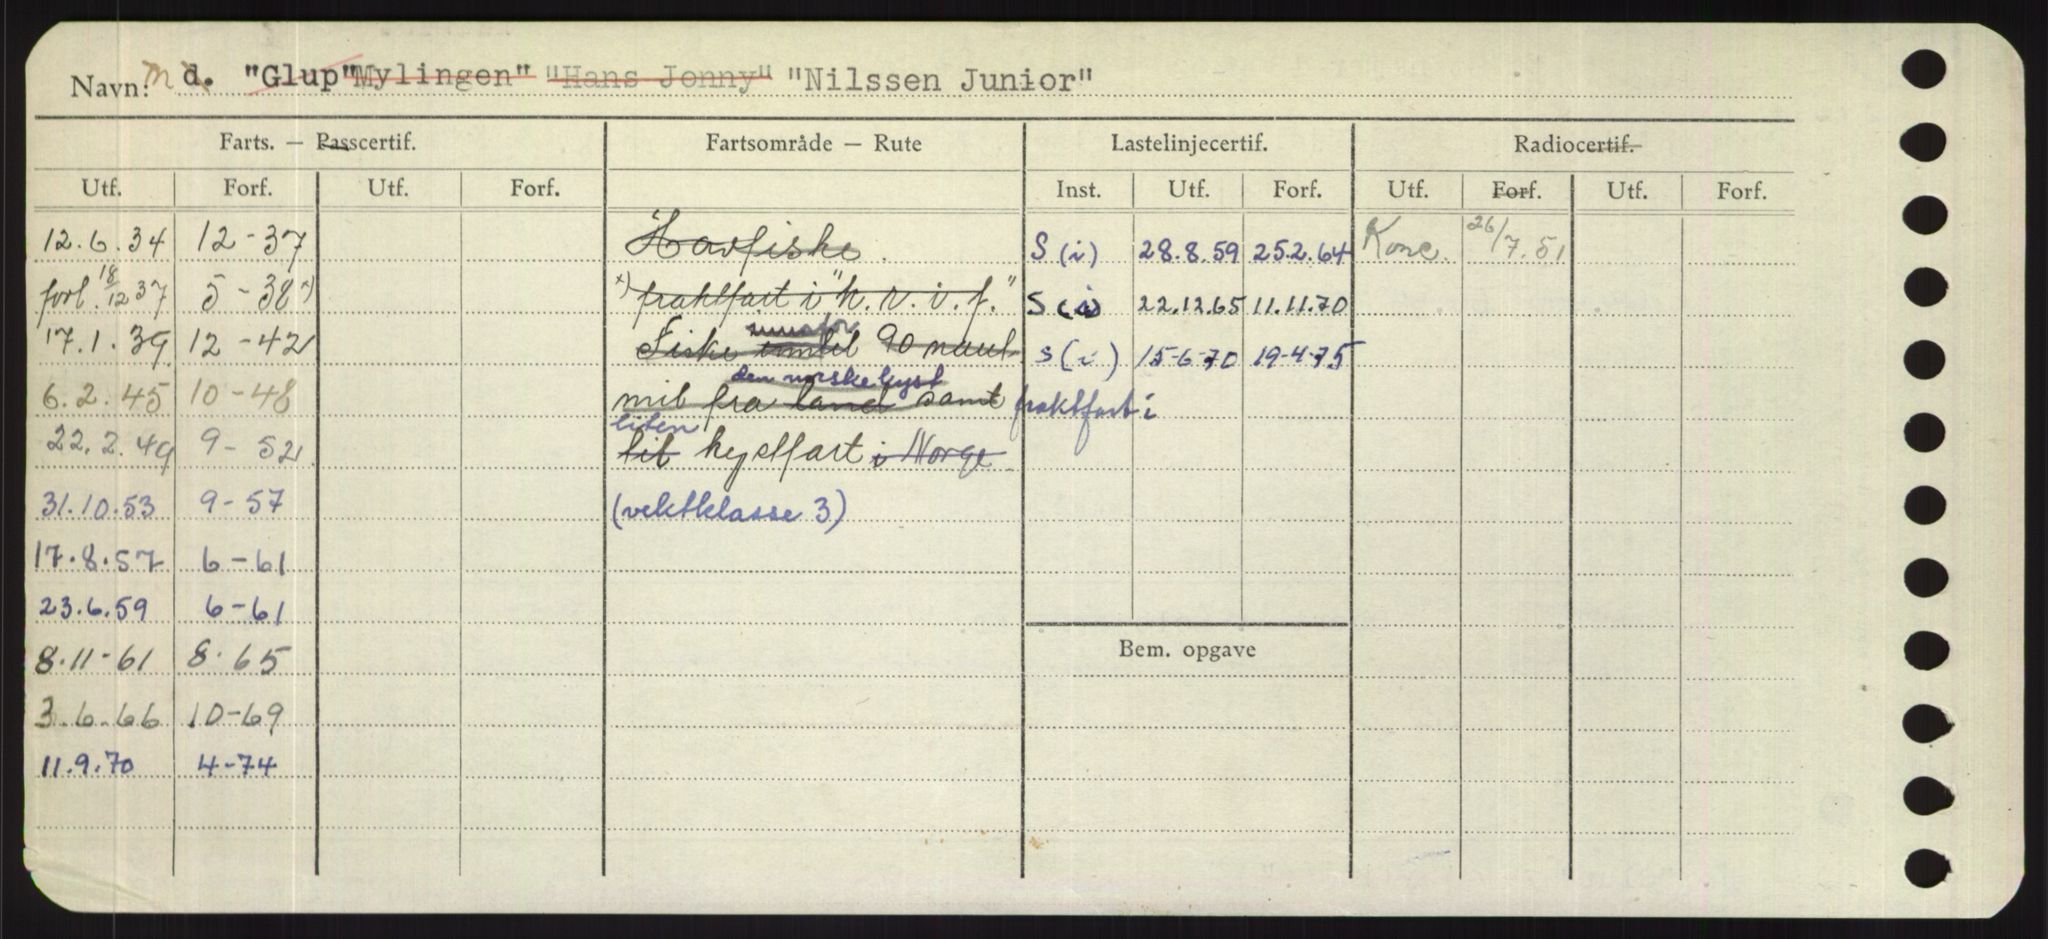 Navn: M d. "Glup" "Mylingen" "Hans Jonny" "Nilssen Junior"
Farts. — Passcertif. Fartsområde — Rute Lastelinjecertif. Radiocertif.
Utf. Forf. Utf. Forf. Inst. Utf. Forf. Utf. Forf. Utf. Forf.
12.6.34 12-37 Havfiske. S (i) 28.8.59 25.2.64 Konc. 26/7.51
forl. 18/12 37 5-38 x) x) fraktfart i "k.v.i.f." S (i) 22.12.65 11.11.70
17.1.39 12-42 Fiske inntil 90 naut. S (i) 15-6-70 19-4-75
den norske kyst
6.2.45 10-48 mil fra land samt fraktfart i
liten
22.2.49 9-52 til kystfart i Norge
31.10.53 9-57 (vektklasse 3)
17.8.57 6-61
23.6.59 6-61
8.11-61 8.65
Bem. opgave
3.6.66 10-69
11.9.70 4-74